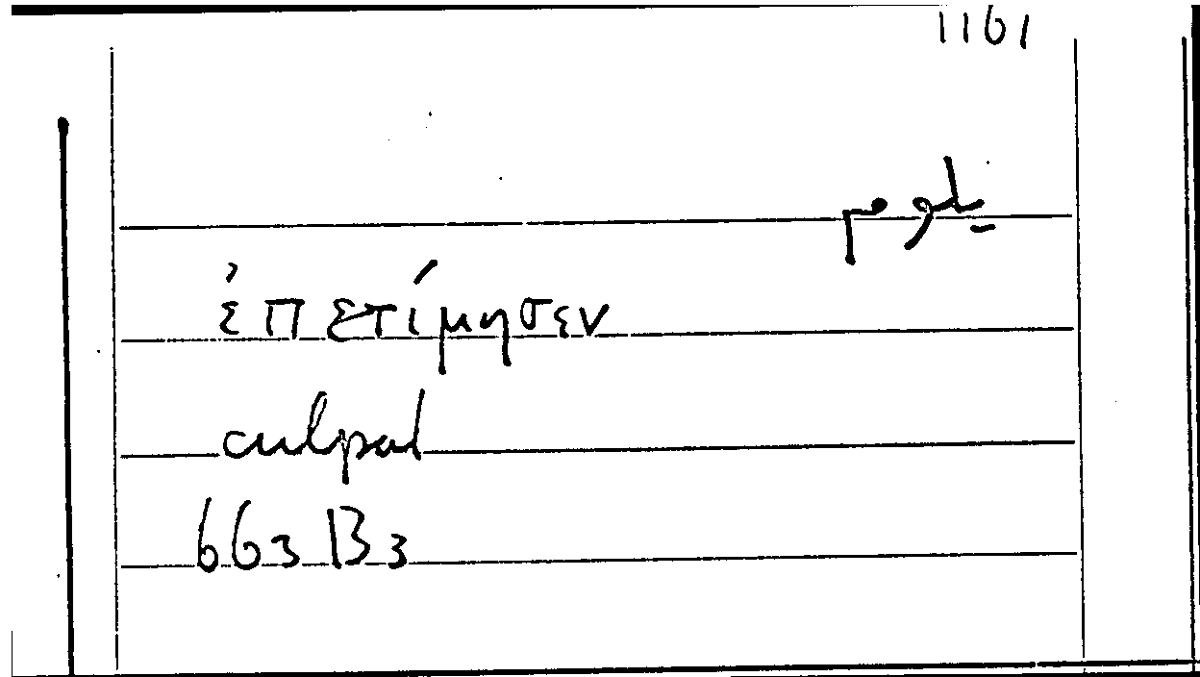 1161
ἐπετίμησεν
culpat
663 B3